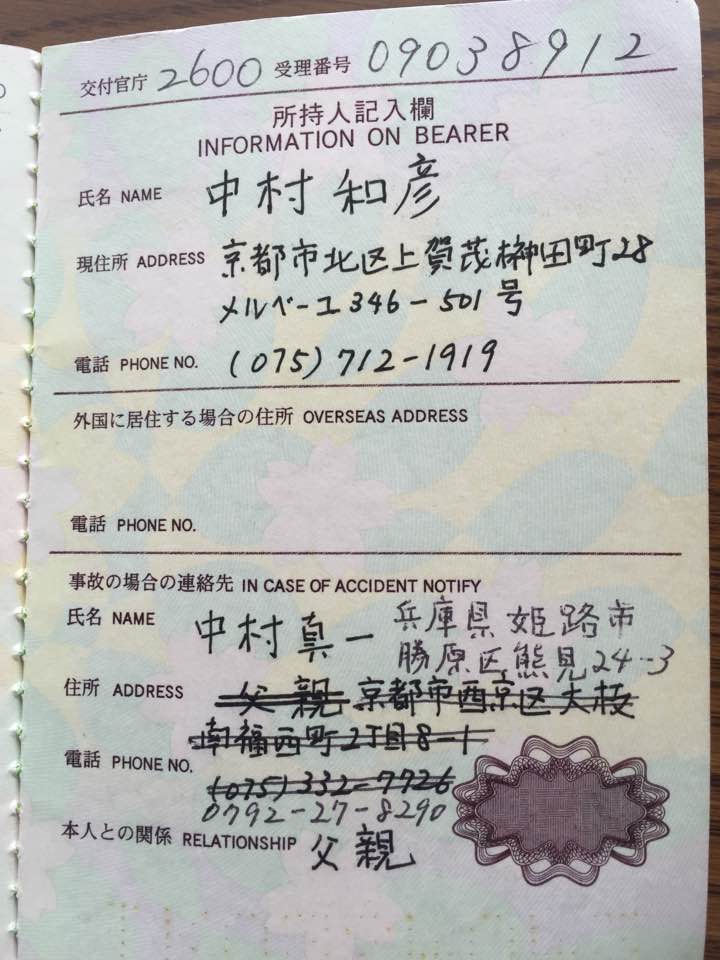 交付官庁 2600 受理番号 09038912
所持人記入欄
INFORMATION ON BEARER
氏名 NAME 中村 和彦
現住所 ADDRESS 京都市北区上賀茂榊田町28
メルベーユ346-501号
電話 PHONE NO. (075)712-1919
外国に居住する場合の住所 OVERSEAS ADDRESS
電話 PHONE NO.
事故の場合の連絡先 IN CASE OF ACCIDENT NOTIFY
氏名 NAME 中村真一 兵庫県姫路市
勝原区熊見24-3
住所 ADDRESS 父親 京都市西京区大枝
南福西町2丁目8-1
電話 PHONE NO. (075)332-7726
0792-27-8290
本人との関係 RELATIONSHIP 父親